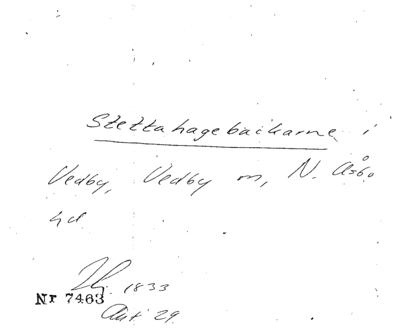 Slettahagebackarna i
Vedby, Vedby sn, N. Åsbo
hd
1833
Nr 7463
Akt 29.